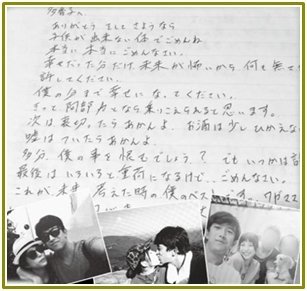 多香子へ
ありがとう そして さようなら
子供が出来ない体でごめんね
本当に 本当に ごめんなさい。
幸せだった分だけ、未来が怖いから 何も無
許してください。
僕の分まで幸せになってください。
きっと 阿部 力となら乗りこえられると思います。
次は 裏切ったらあかんよ。お酒は少しひかえな
嘘はついたらあかんよ。
多分、僕の事を恨むでしょう? でもいつかは
最後は いろいろと 重荷になるけど、ごめんなさい。
これが、未来 考えた時の 僕のベストです。